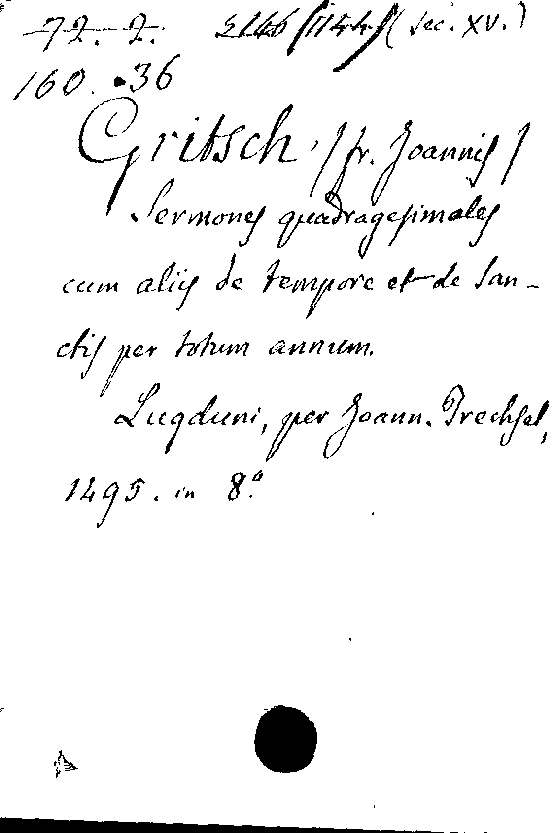 72. 2. 2146 /1144/ (sec. XV.)
160. 36
Gritsch, /fr. Joannis/
Sermones quadragesimales
cum aliis de tempore et de San-
ctis per totum annum.
Lugduni, per Joann. Trechsel,
1495. in 8.º